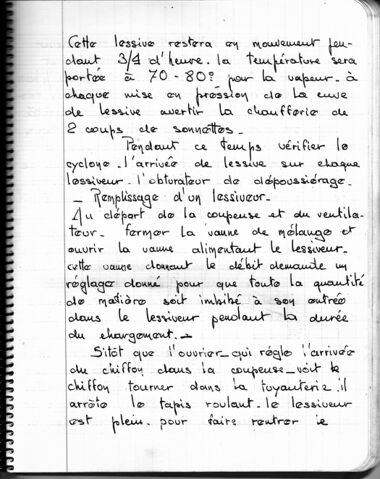 Cette lessive restera en mouvement pen-
dant 3/4 d'heure. la température sera
portée à 70-80° par la vapeur. à
chaque mise en pression de la cuve
de lessive avertir la chaufferie de
2 coups de sonnettes.
Pendant ce temps vérifier le
cyclone. l'arrivée de lessive sur chaque
lessiveur. l'obturateur de dépoussiérage.
_ Remplissage d'un lessiveur.
Au départ de la coupeuse et du ventila-
teur. fermer la vanne de mélange et
ouvrir la vanne alimentant le lessiveur.
cette vanne donnant le débit demande un
réglage donné pour que toute la quantité
de matière soit imbibé à son entrée
dans le lessiveur pendant la durée
du chargement. _
Sitôt que l'ouvrier_qui règle l'arrivée
du chiffon dans la coupeuse_voit le
chiffon tourner dans la tuyauterie. il
arrête le tapis roulant. le lessiveur
est plein. pour faire rentrer le